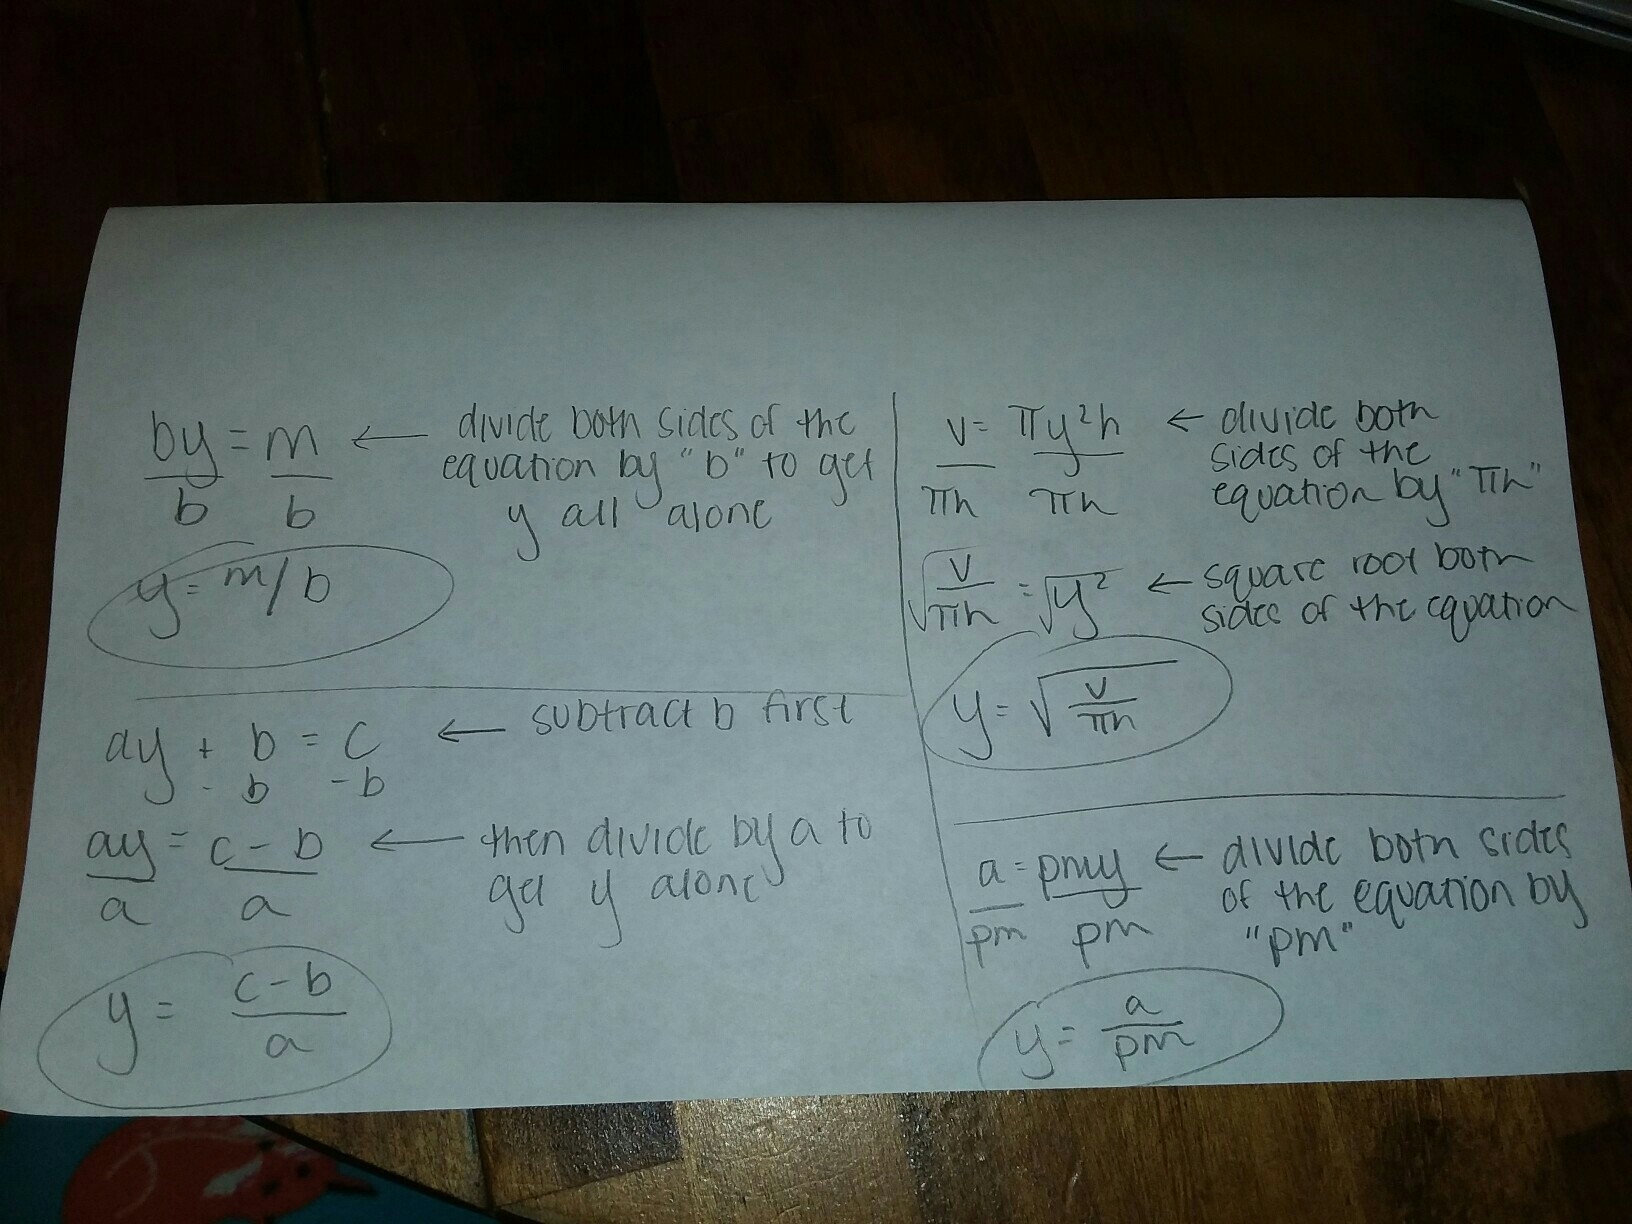 by = m ← divide both sides of the
b b equation by "b" to get
y all alone
y = m/b
ay + b = c ← subtract b first
- b -b
ay = c - b ← then divide by a to
a a get y alone
y = c-b
a
v = πy²h ← divide both
πh πh sides of the
equation by "πh"
√v/πh = √y² ← square root both
sides of the equation
y = √v/πh
a = pmy ← divide both sides
pm pm of the equation by
"pm"
y = a
pm